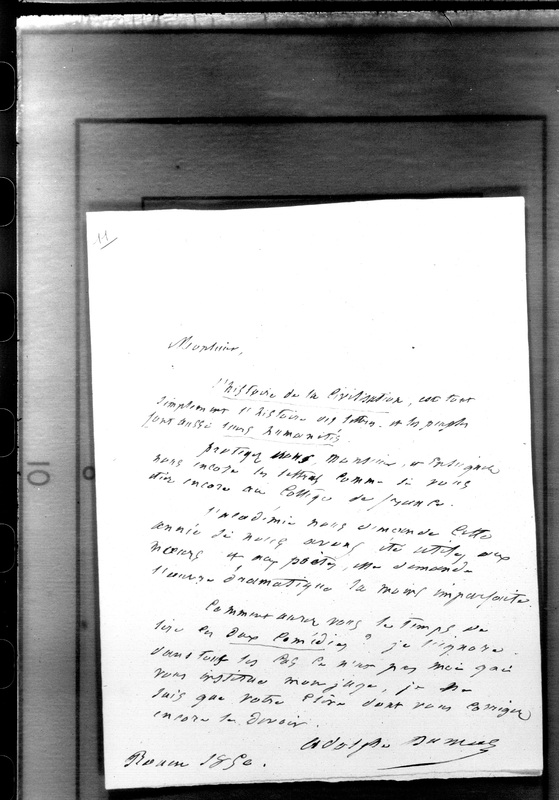 11
Monsieur,
l'histoire de la Civilisation, est tout
simplement l'histoire des lettres. et les peuples
font aussi leurs humanités
protegez nous Monsieur, et Enseignez
nous encore les lettres comme si vous
étiez encore au College de france.
l'académie nous demande Cette
année si nous avons été utiles aux
moeurs et aux poètes, elle demande
l'oeuvre dramatique la moins imparfaite.
Comment aurez vous le temps de
lire les deux Comédies ? je l'ignore.
dans tous les Cas Ce n'est pas moi qui
vous institue mon juge, je ne
suis que votre Elève dont vous Corrigez
encore le devoir.
Adolphe Dumas
Rouen 1850.
10